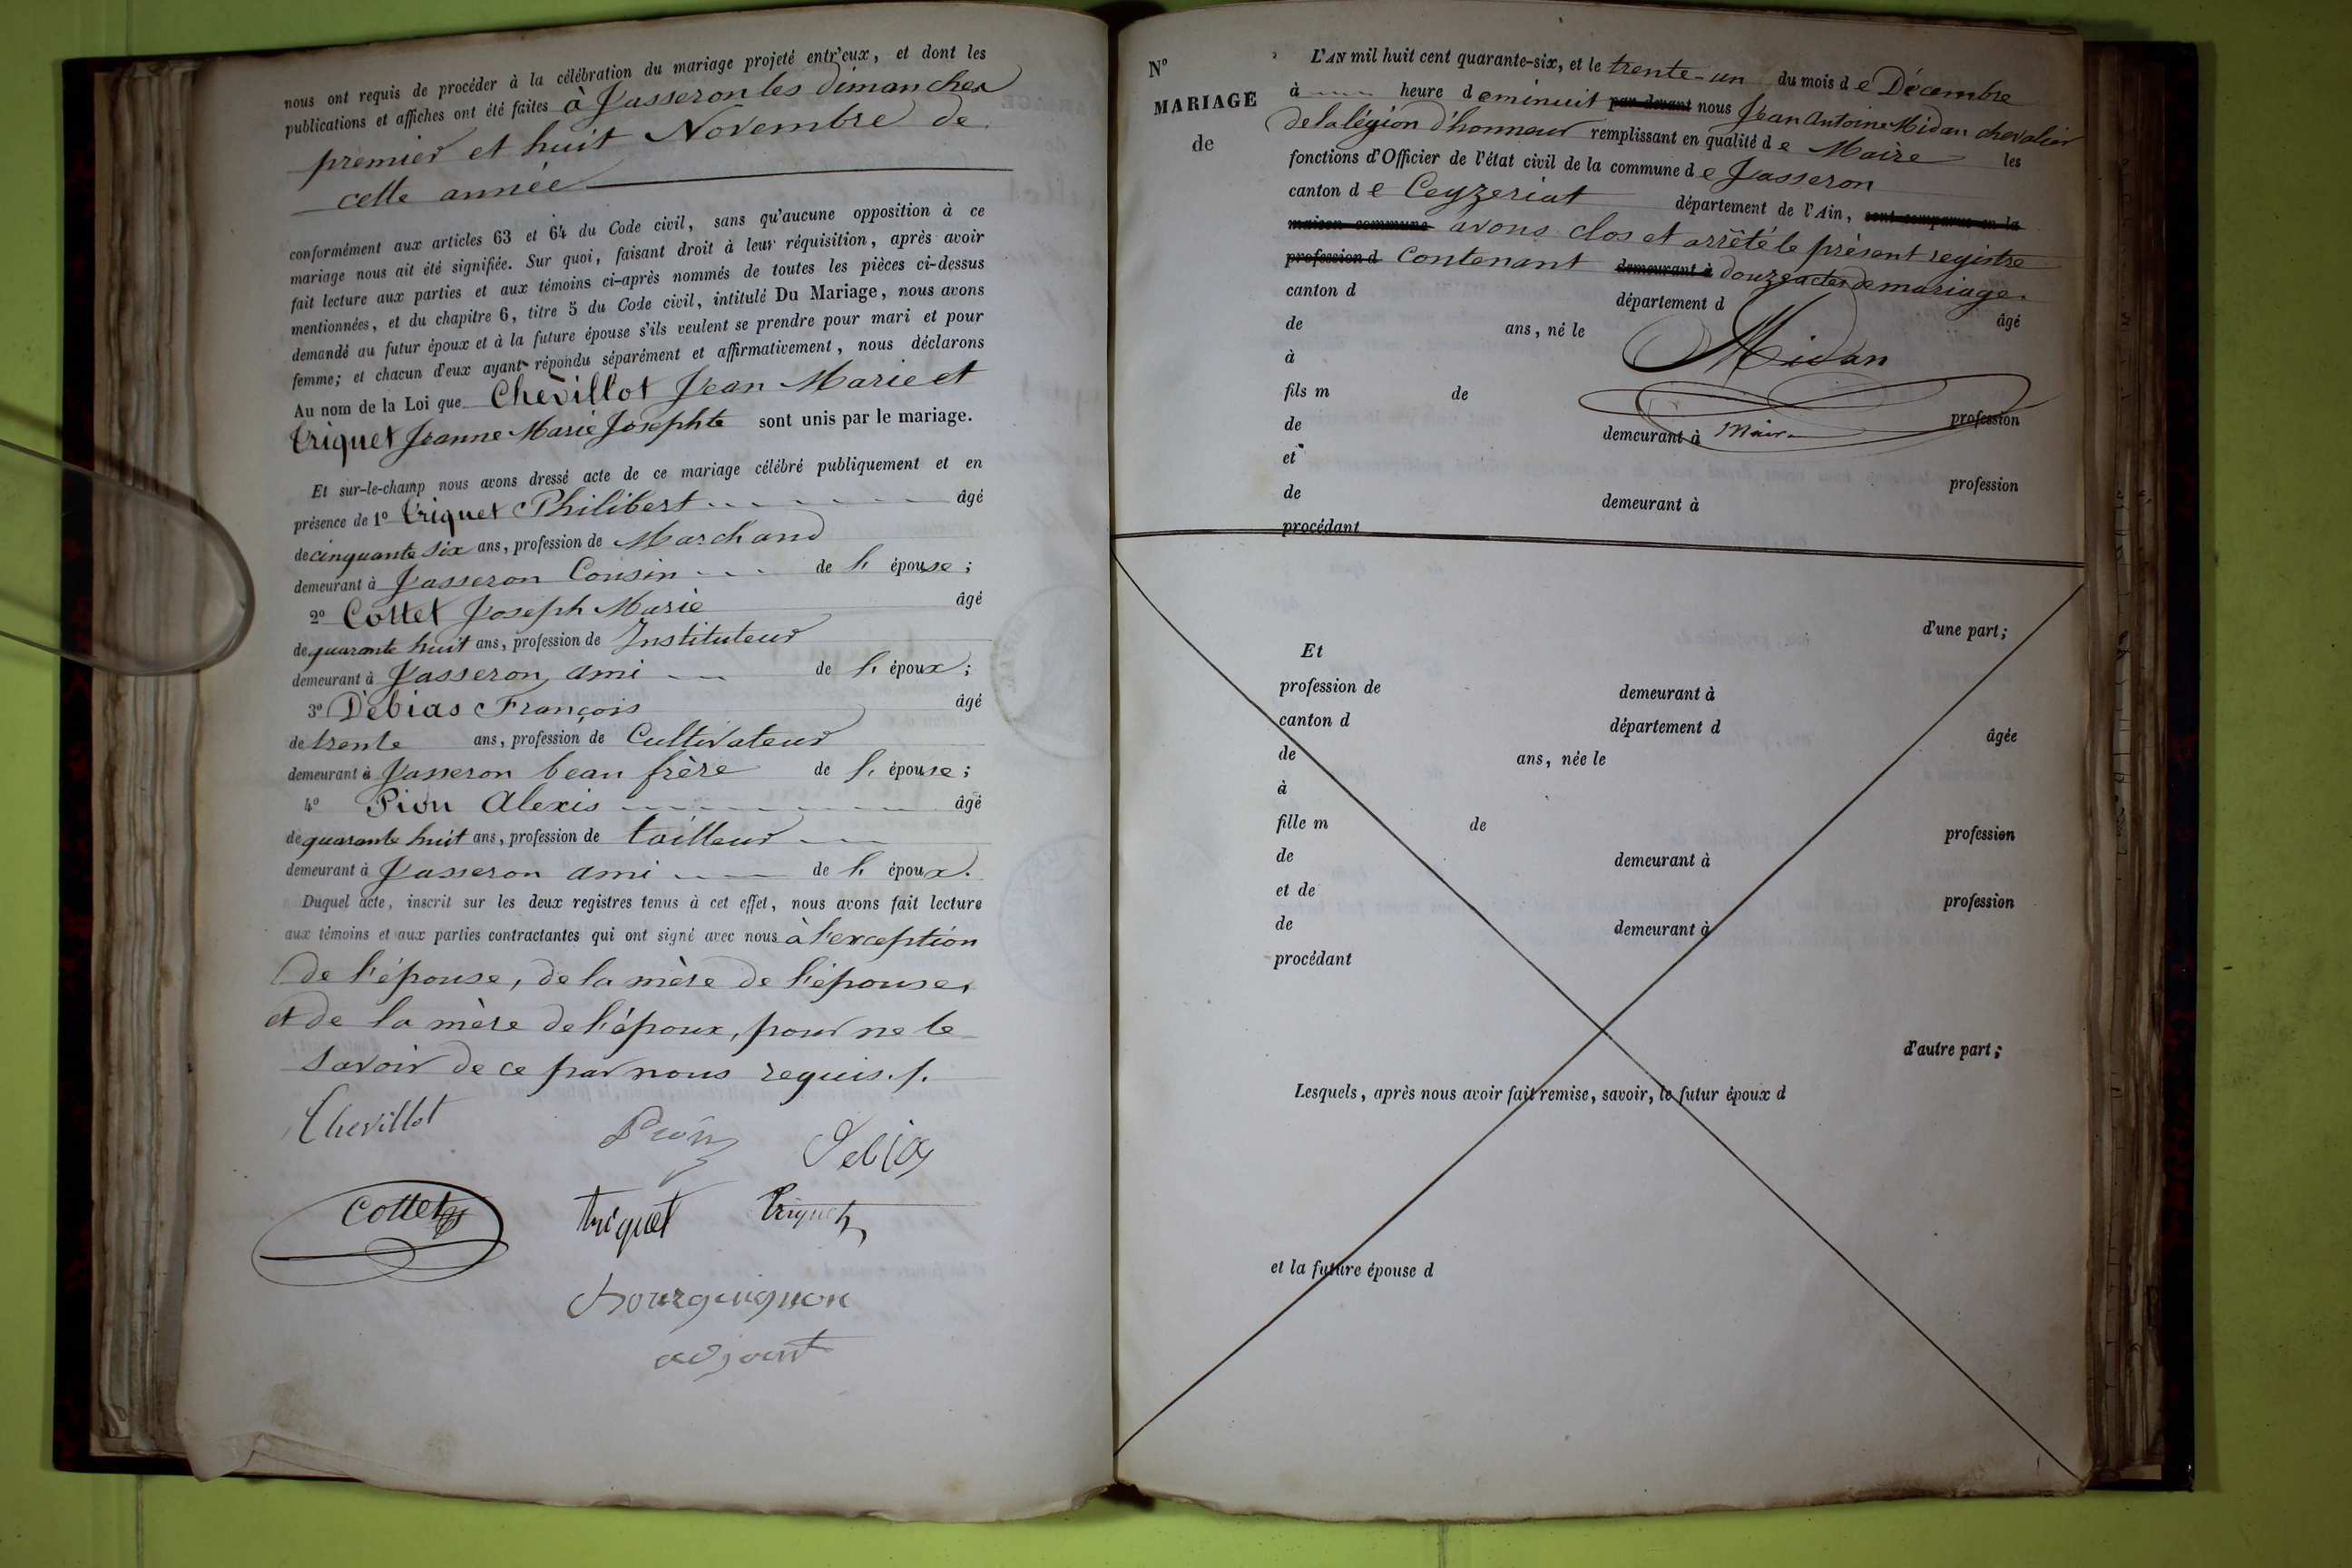 nous ont requis de procéder à la célébration du mariage projeté entr'eux, et dont les
publications et affiches ont été faites à Jasseron les dimanches
premier et huit Novembre de
cette année
conformément aux articles 63 et 64 du Code civil, sans qu'aucune opposition à ce
mariage nous ait été signifiée. Sur quoi, faisant droit à leur réquisition, après avoir
fait lecture aux parties et aux témoins ci-après nommés de toutes les pièces ci-dessus
mentionnées, et du chapitre 6, titre 5 du Code civil, intitulé Du Mariage, nous avons
demandé au futur époux et à la future épouse s'ils veulent se prendre pour mari et pour
femme; et chacun d'eux ayant répondu séparément et affirmativement, nous déclarons
Au nom de la Loi que Chevillot Jean Marie et
Triquet Jeanne Marie Josephte sont unis par le mariage.
Et sur-le-champ nous avons dressé acte de ce mariage célébré publiquement et en
présence de 1º Triquet Philibert âgé
de cinquante six ans, profession de Marchand
demeurant à Jasseron Cousin de l' épouse;
2º Cottet Joseph Marie âgé
de quarante huit ans, profession de Instituteur
demeurant à Jasseron, ami de l' époux;
3º Debias François âgé
de trente ans, profession de Cultivateur
demeurant à Jasseron beau frère de l' épouse;
4º Pion Alexis âgé
de quarante huit ans, profession de tailleur
demeurant à Jasseron ami de l' époux.
Duquel acte, inscrit sur les deux registres tenus à cet effet, nous avons fait lecture
aux témoins et aux parties contractantes qui ont signé avec nous à l'exception
de l'épouse, de la mère de l'épouse,
et de la mère de l'époux, pour ne le
savoir de ce par nous requis./.
Chevillot Pion Debias
Cottet triquet Triquet
Bourguignon
adjoint
Nº
MARIAGE
de
L'AN mil huit cent quarante-six, et le trente-un du mois de Décembre
à heure de minuit par-devant nous Jean Antoine Midan chevalier
de la légion d'honneur remplissant en qualité de Maire les
fonctions d'Officier de l'état civil de la commune de Jasseron
canton de Ceyzeriat département de l'Ain, sont comparus en la
maison commune avons clos et arrêté le présent registre
profession d contenant demeurant à douze actes de mariage.
canton d département d
de ans, né le âgé
à Midan
fils m de
de demeurant à Maire profession
et
de demeurant à profession
procédant
d'une part;
Et
profession de demeurant à
canton d département d
de ans, née le âgée
à
fille m de
de demeurant à profession
et de
de demeurant à profession
procédant
d'autre part;
Lesquels, après nous avoir fait remise, savoir, le futur époux d
et la future épouse d